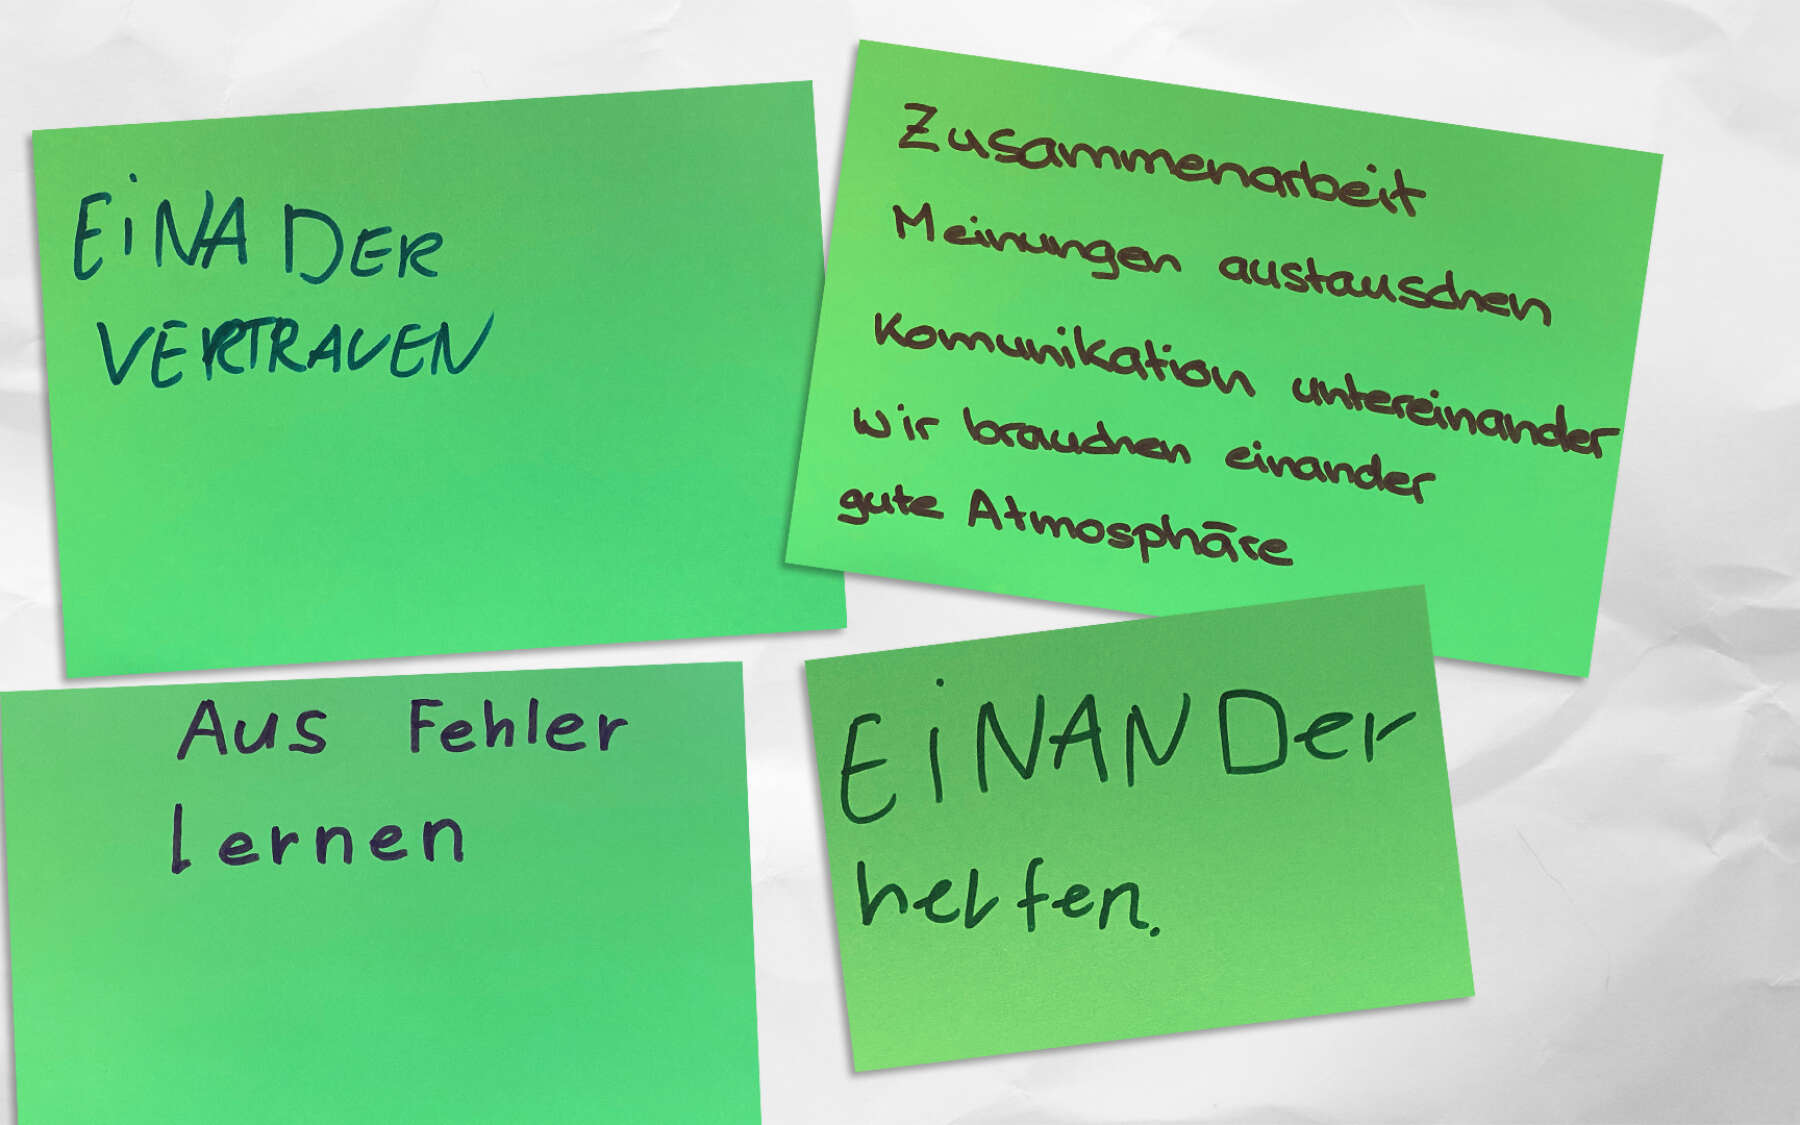 EiNADER
VERTRAUEN
Zusammenarbeit
Meinungen austauschen
Komunikation untereinander
wir brauchen einander
gute Atmosphäre
Aus Fehler
lernen
EiNANDer
helfen.